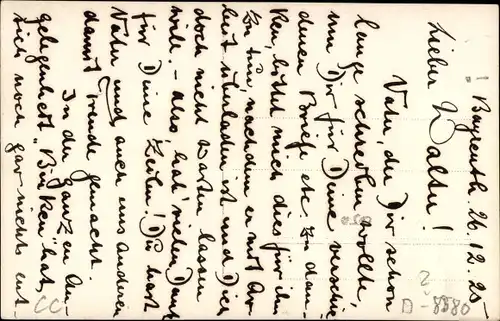 Bayreuth. 26. 12. 25-
Lieber Walter!
Vater, der Dir schon
lange schreiben wollte,
um Dir für Deine verschie-
denen Briefe etc. zu dan-
ken, bittet mich dies für ihn
zu tun, nachdem er mit Ar-
beit überladen ist und Dich
doch nicht warten lassen
will. - Also, hab' vielen Dank
für Deine Zeilen! Du hast
Vater und auch uns anderen
damit Freude gemacht.
In der ganzen An-
gelegenheit "Birken" hat
sich noch gar nichts ent-
CC
D-8580
?